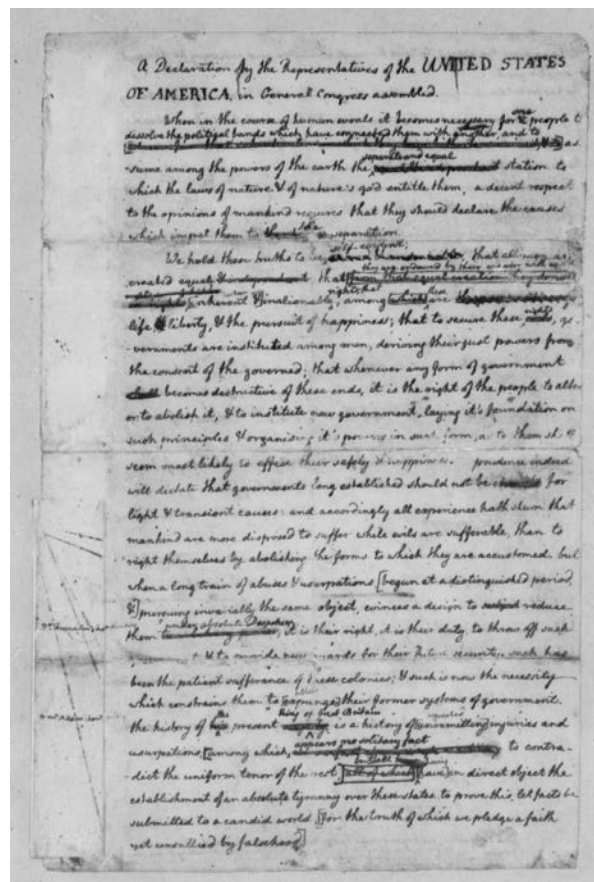 A Declaration by the Representatives of the UNITED STATES
OF AMERICA, in General Congress assembled.
When in the course of human events it becomes necessary for one people to
dissolve the political bands which have connected them with another, and to as
-sume among the powers of the earth the separate and equal station to
which the laws of nature & of nature's god entitle them, a decent respect
to the opinions of mankind requires that they should declare the causes
which impel them to the separation.
We hold these truths to be self-evident; that all men are
created equal that they are endowed by their creator with
rights; that inherent & inalienable among which are
life, & liberty, & the pursuit of happiness; that to secure these rights, go
vernments are instituted among men, deriving their just powers from
the consent of the governed; that whenever any form of government
becomes destructive of these ends, it is the right of the people to alter
or to abolish it, & to institute new government, laying it's foundation on
such principles & organising it's powers in such form, as to them sh
seem most likely to effect their safety & happiness. prudence indeed
will dictate that governments long established should not be for
light & transient causes: and accordingly all experience hath shewn that
mankind are more disposed to suffer while evils are sufferable, than to
right themselves by abolishing the forms to which they are accustomed. but
when a long train of abuses & usurpations [begun at a distinguished period,
&] pursuing invariably the same object, evinces a design to reduce
them under absolute Despotism, it is their right, it is their duty, to throw off such
& to provide new guards for their future security. such has
been the patient sufferance of these colonies; & such is now the necessity
which constrains them to [expunge] their former systems of government.
the history of the present King of Great Britain is a history of [unremitting] injuries and
usurpations, [among which, appears no solitary fact to contra-
-dict the uniform tenor of the rest, all of which] [have] in direct object the
establishment of an absolute tyranny over these states. to prove this, let facts be
submitted to a candid world, [for the truth of which we pledge a faith
yet unsullied by falsehood]